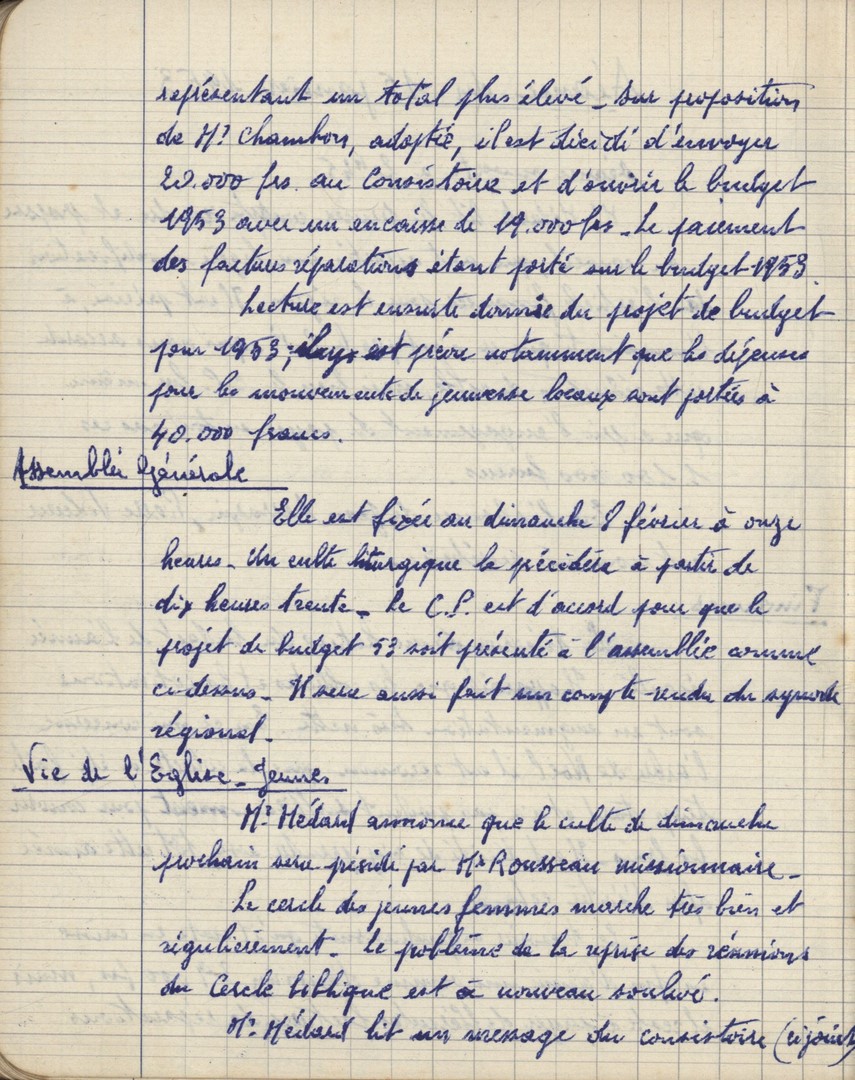 représentant un total plus élevé _ Sur proposition
de Mr Chambon, adoptée, il est décidé d'envoyer
20.000 frs. au Consistoire et d'ouvrir le budget
1953 avec un encaisse de 19.000 frs _ Le paiement
des factures réparations étant porté sur le budget 1953
Lecture est ensuite donnée du projet de budget
pour 1953, est prévu notamment que les dépenses
pour les mouvements de jeunesse locaux sont portées à
40.000 francs.
Assemblée Générale
Elle est fixée au dimanche 8 février à onze
heures _ Un culte liturgique la précédera à partir de
dix heures trente _ Le C.P. est d'accord pour que le
projet de budget 53 soit présenté à l'assemblée comme
ci-dessus _ Il sera aussi fait un compte-rendu du synode
régional _
Vie de l'Eglise _ Jeunes
Mr Médard annonce que le culte de dimanche
prochain sera présidé par Mr Rousseau missionnaire _
Le cercle des jeunes femmes marche très bien et
régulièrement _ Le problème de la reprise des réunions
du Cercle biblique est à nouveau soulevé.
Mr Médard lit un message du consistoire (ci joint)